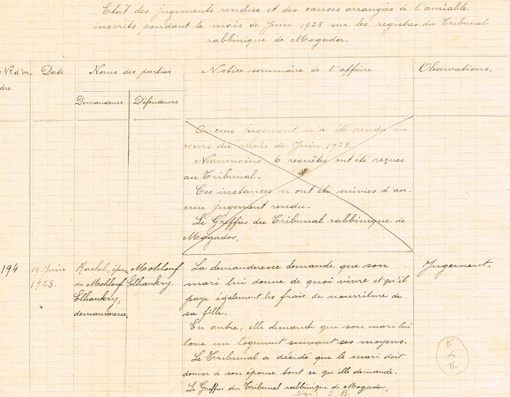 Etat des jugements rendus et des causes arrangées à l'amiable
inscrits pendant le mois de Juin 1928 sur les registres du Tribunal
rabbinique de Mogador.
N° d'or
dre
Date
Noms des parties
Notice sommaire de l'affaire
Observations.
Demandeurs
Défendeurs
Aucun jugement n'a été rendu au
cours du mois de Juin 1928.
Néanmoins 6 requêtes ont été reçues
au Tribunal.
Ces instances n'ont été suivies d'au-
cun jugement rendu.
Le Greffier du Tribunal rabbinique de
Mogador,
194
19 Juin
1928.
Rachel, épouse
de Mohlouf
Elhankry,
demanderesse,
Mohlouf
Elhankry
La demanderesse demande que son
mari lui donne de quoi vivre et qu'il
paye également les frais de nourriture de
sa fille.
En outre, elle demande que son mari lui
loue un logement suivant ses moyens.
Le Tribunal a décidé que le mari doit
donner à son épouse tout ce qu'elle demande.
Le Greffier du Tribunal rabbinique de Mogador,
Jugement.